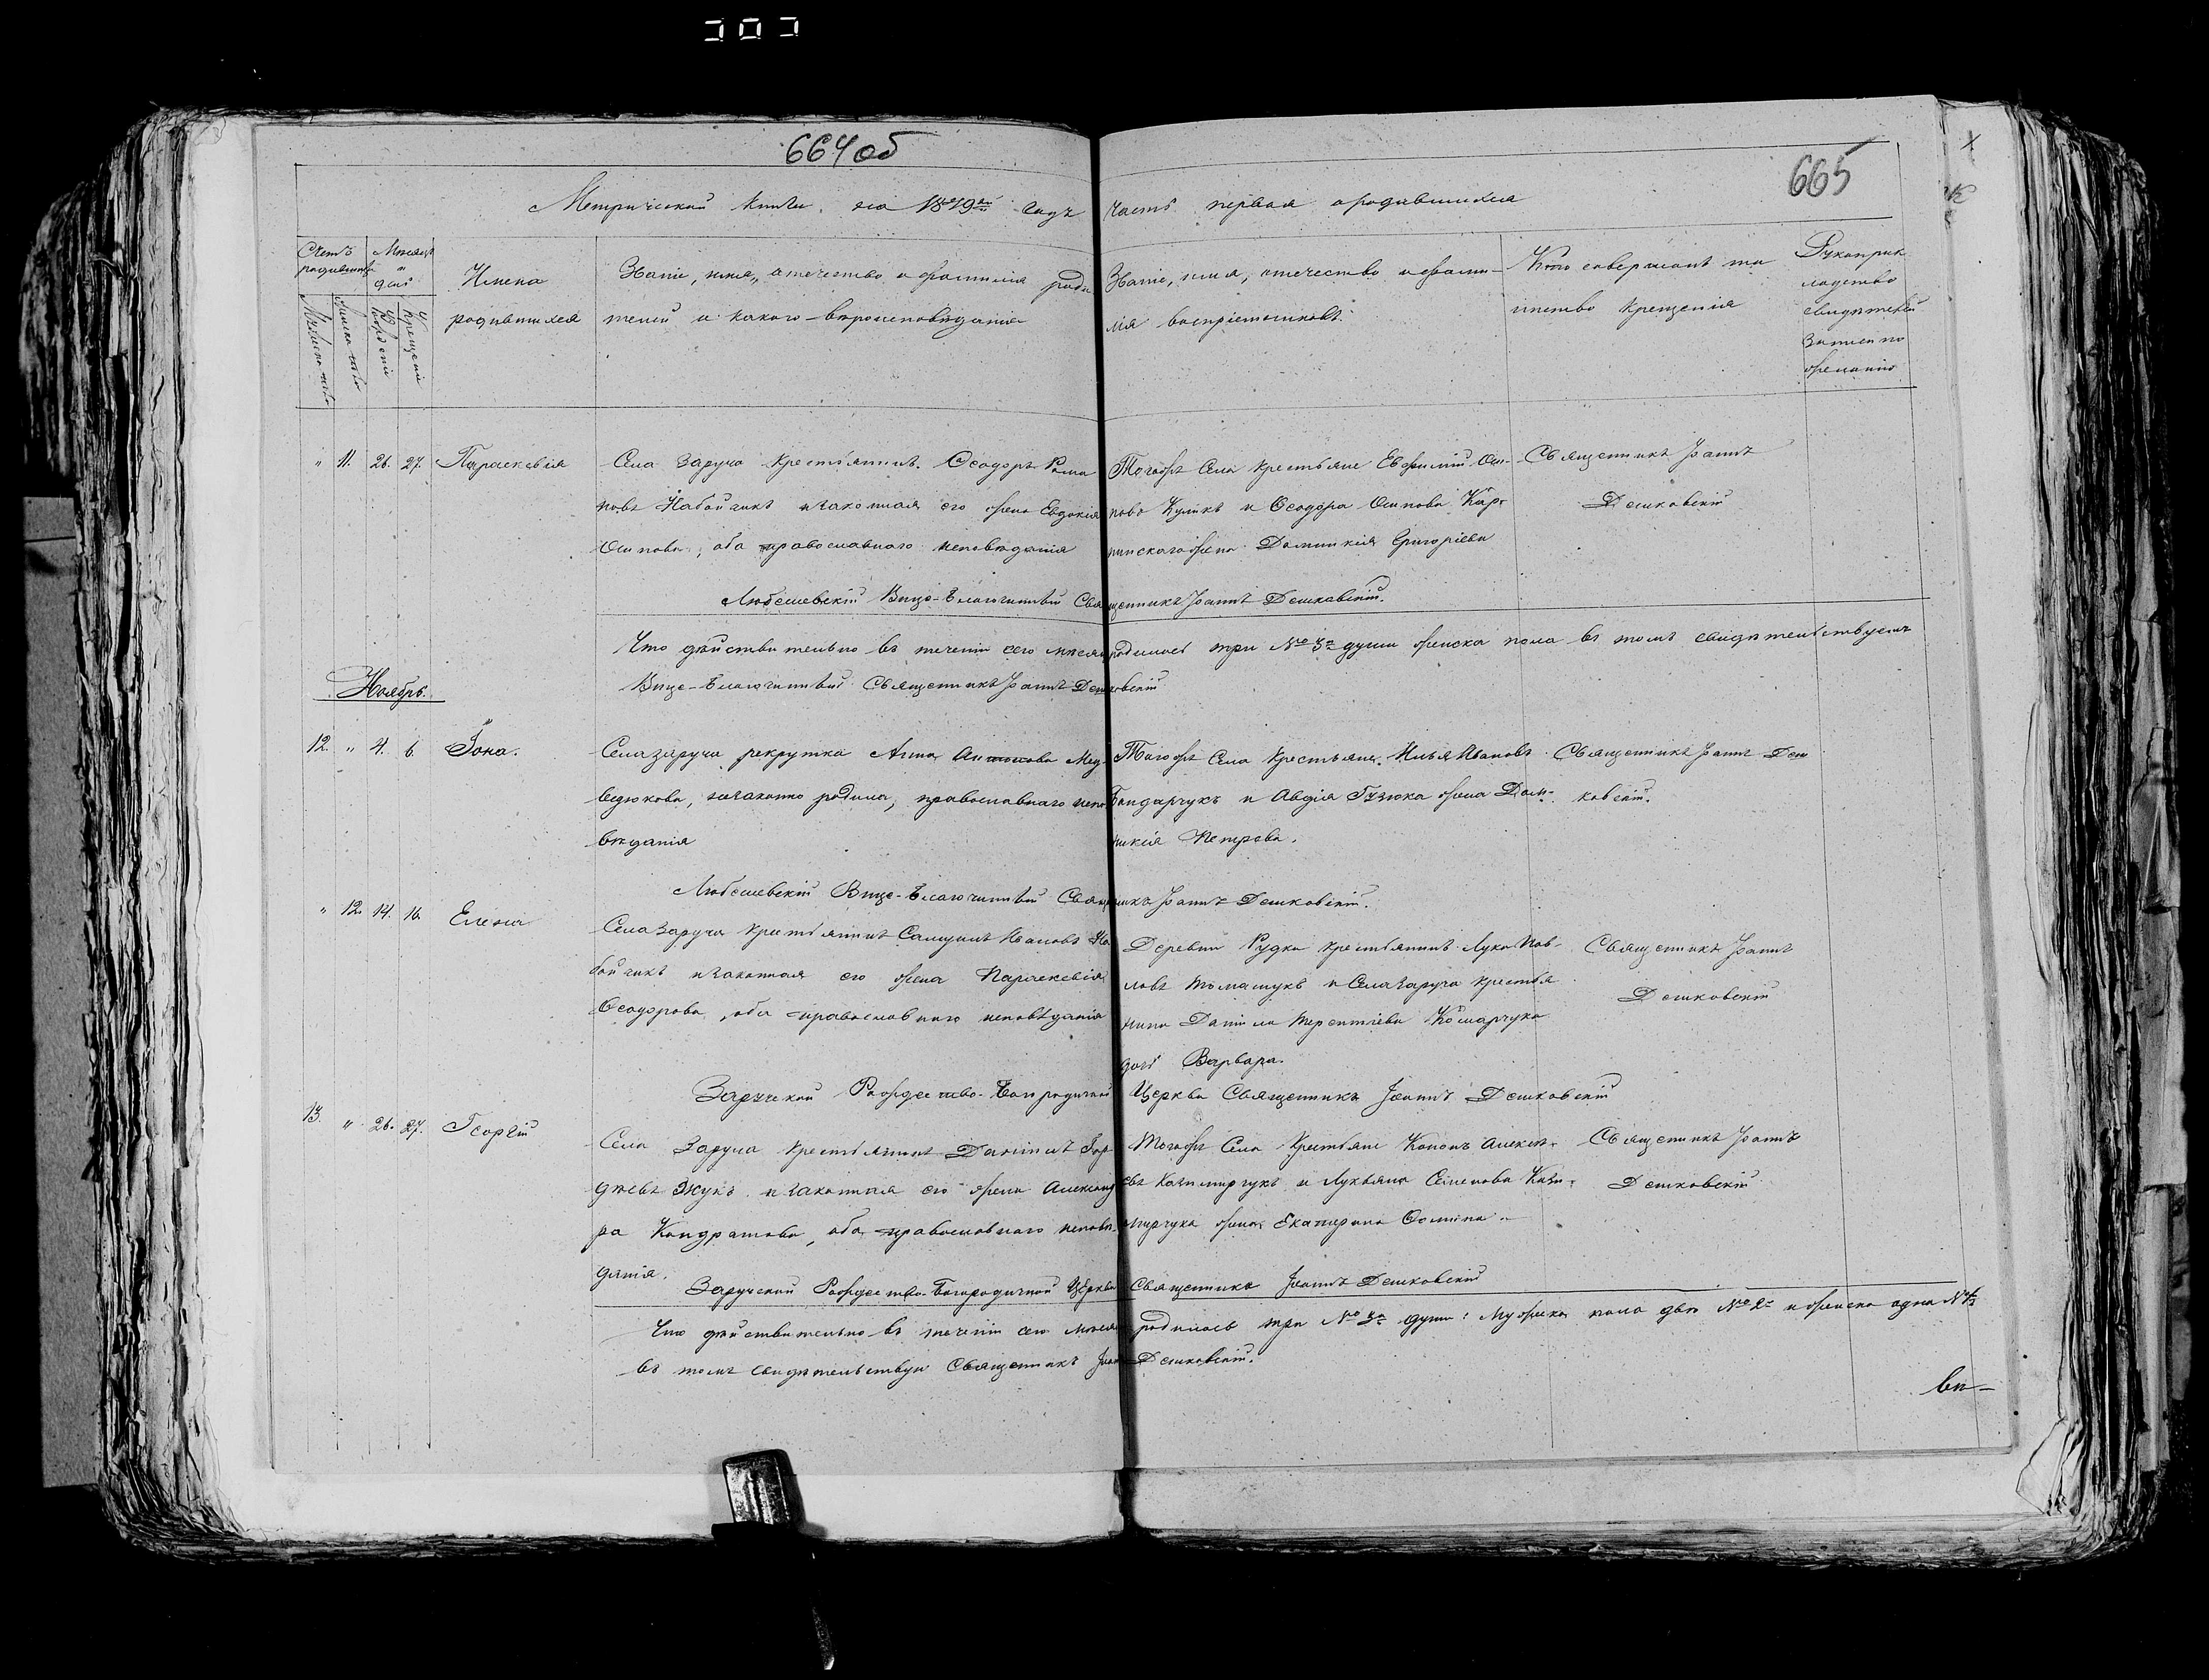 664 об
665
Метрической книги на 1879й годъ часть первая о родившихся
Счетъ родившихся
Мужеска пола
Женска пола
Мѣсяцъ и день
Рожденія
Крещенія
Имена родившихся
Званіе, имя, отечество и фамилія роди-
телей и какого вѣроисповѣданія
Званіе, имя, отечество и фами-
лія воспріемниковъ.
Кто совершалъ та
инство крещенія
Рукоприк
ладство
свидѣтелей
записи по
желанію
" 11. 26. 27. Параскевія
Села Заруча крестьянинъ Ѳеодоръ Рома
новъ Набойчикъ и законная его жена Евдокія
Осипова, оба православнаго исповѣданія
Тогожъ Села крестьяне Евфимій Оси-
повъ Куликъ и Ѳеодора Осипова Кар-
пинскаго жена Домникія Григоріева
Священникъ Іоаннъ
Дешковскій
Любешевскій Вице-Благочинный Священникъ Іоаннъ Дешковскій.
Что дѣйствительно въ теченіи сего мѣсяца родилось три № 3 души женска пола въ томъ свидѣтельствуемъ
Вице-Благочинный Священникъ Іоаннъ Дешковскій
Ноябрь.
12. " 4. 6. Іона.
Села Заруча рекрутка Анна Антонова Мед-
ведюкова, незаконно родила, православнаго испо
вѣданія
Тогожъ Села крестьяне Илья Ивановъ
Бондарчукъ и Авдія Гузюка жена Дом-
никія Петрова.
Священникъ Іоаннъ Деш
ковскій.
Любешевскій Вице-Благочинный Священникъ Іоаннъ Дешковскій.
" 12. 14. 16. Елена
Села Заруча крестьянинъ Самуилъ Ивановъ На
бойчикъ и законная его жена Параскевія
Ѳеодорова, оба православнаго исповѣданія
Деревни Рудки крестьянинъ Лука Пав-
ловъ Томашукъ и Села Заруча крестья
нина Даніила Терентіева Комарчука
дочь Варвара.
Священникъ Іоаннъ
Дешковскій
Заручской Рождество-Богородичной Церкви Священникъ Іоаннъ Дешковскій
13. " 26. 27. Георгій
Села Заруча крестьянинъ Даніилъ Гор-
дѣевъ Жукъ и законная его жена Александ
ра Кондратова, оба православнаго исповѣ-
данія.
Тогожъ Села крестьяне Кононъ Алексѣ-
евъ Казимирчукъ и Лукьяна Семенова Кази-
мирчука жена Екатерина Ѳомина
Священникъ Іоаннъ
Дешковскій
Заручской Рождество-Богородичной Церкви Священникъ Іоаннъ Дешковскій
Что дѣйствительно въ теченіи сего мѣсяца родилось три № 3 души: мужеска пола двѣ № 2 и женска одна № 1
въ томъ свидѣтельствую Священникъ Іоаннъ Дешковскій.